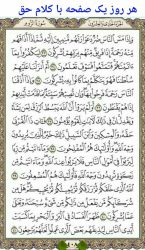 هر روز یک صفحه با کلام حق
الجزء الحادي والعشرون سورة الروم
وَإِذَا مَسَّ النَّاسَ ضُرٌّ دَعَوْا رَبَّهُم مُّنِيبِينَ إِلَيْهِ ثُمَّ إِذَا أَذَاقَهُم
مِّنْهُ رَحْمَةً إِذَا فَرِيقٌ مِّنْهُم بِرَبِّهِمْ يُشْرِكُونَ ٣٣ لِيَكْفُرُوا بِمَا
آتَيْنَاهُمْ فَتَمَتَّعُوا فَسَوْفَ تَعْلَمُونَ ٣٤ أَمْ أَنزَلْنَا عَلَيْهِمْ
سُلْطَانًا فَهُوَ يَتَكَلَّمُ بِمَا كَانُوا بِهِ يُشْرِكُونَ ٣٥ وَإِذَا أَذَقْنَا
النَّاسَ رَحْمَةً فَرِحُوا بِهَا وَإِن تُصِبْهُمْ سَيِّئَةٌ بِمَا قَدَّمَتْ
أَيْدِيهِمْ إِذَا هُمْ يَقْنَطُونَ ٣٦ أَوَلَمْ يَرَوْا أَنَّ اللَّهَ يَبْسُطُ الرِّزْقَ
لِمَن يَشَاءُ وَيَقْدِرُ إِنَّ فِي ذَلِكَ لَآيَاتٍ لِّقَوْمٍ يُؤْمِنُونَ ٣٧ فَآتِ ذَا الْقُرْبَى
حَقَّهُ وَالْمِسْكِينَ وَابْنَ السَّبِيلِ ذَلِكَ خَيْرٌ لِّلَّذِينَ يُرِيدُونَ
وَجْهَ اللَّهِ وَأُولَئِكَ هُمُ الْمُفْلِحُونَ ٣٨ وَمَا آتَيْتُم مِّن رِّبًا
لِّيَرْبُوَ فِي أَمْوَالِ النَّاسِ فَلَا يَرْبُو عِندَ اللَّهِ وَمَا آتَيْتُم مِّن زَكَاةٍ
تُرِيدُونَ وَجْهَ اللَّهِ فَأُولَئِكَ هُمُ الْمُضْعِفُونَ ٣٩ اللَّهُ الَّذِي
خَلَقَكُمْ ثُمَّ رَزَقَكُمْ ثُمَّ يُمِيتُكُمْ ثُمَّ يُحْيِيكُمْ هَلْ مِن شُرَكَائِكُم
مَّن يَفْعَلُ مِن ذَلِكُم مِّن شَيْءٍ سُبْحَانَهُ وَتَعَالَى عَمَّا يُشْرِكُونَ
٤٠ ظَهَرَ الْفَسَادُ فِي الْبَرِّ وَالْبَحْرِ بِمَا كَسَبَتْ أَيْدِي
النَّاسِ لِيُذِيقَهُم بَعْضَ الَّذِي عَمِلُوا لَعَلَّهُمْ يَرْجِعُونَ ٤١
٤٠٨